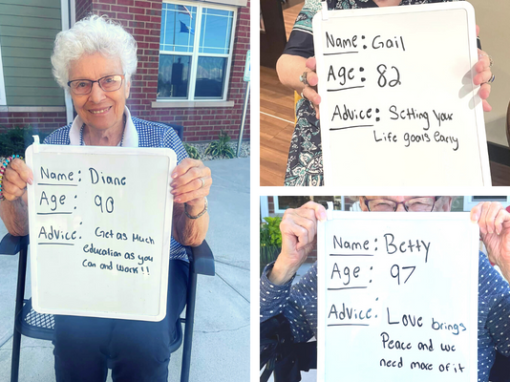 Name: Diane
Age: 90
Advice: Get as Much
education as you
Can and work!!
Name: Gail
Age: 82
Advice: Setting your
Life goals early
Name: Betty
Age: 97
Advice: Love brings
Peace and we
need more of it